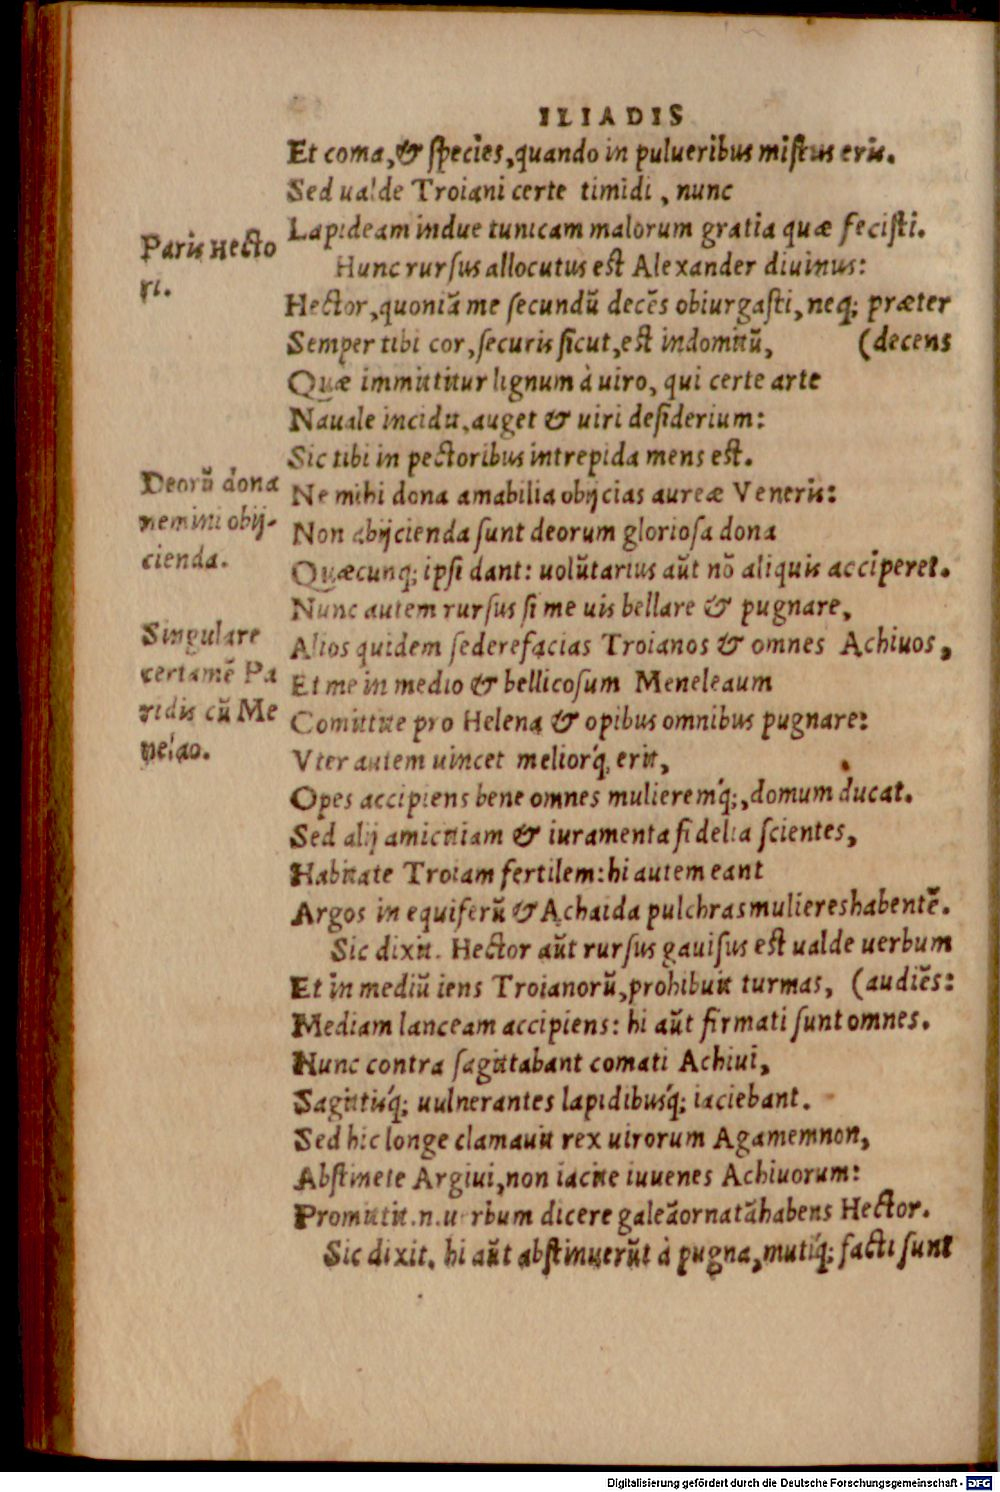 ILIADIS
Et coma, & species, quando in pulueribus mistus eris.
Sed ualde Troiani certe timidi, nunc
Lapideam indue tunicam malorum gratia quæ fecisti.
Paris Hecto
ri.
Hunc rursus allocutus est Alexander diuinus:
Hector, quoniā me secundū decēs obiurgasti, neq; præter
Semper tibi cor, securis sicut, est indomitū, (decens
Quæ immittitur lignum à uiro, qui certe arte
Nauale incidit, auget & uiri desiderium:
Sic tibi in pectoribus intrepida mens est.
Deorū dona
nemini obij-
cienda.
Ne mihi dona amabilia obijcias aureæ Veneris:
Non abijcienda sunt deorum gloriosa dona
Quæcunq; ipsi dant: uolūtarius aūt nō aliquis acciperet.
Nunc autem rursus si me uis bellare & pugnare,
Singulare
certamē Pa
ridis cū Me
nelao.
Alios quidem sedere facias Troianos & omnes Achiuos,
Et me in medio & bellicosum Meneleaum
Comittite pro Helena & opibus omnibus pugnare:
Vter autem uincet meliorq́, erit,
Opes accipiens bene omnes mulieremq́;, domum ducat.
Sed alij amicitiam & iuramenta fidelia scientes,
Habitate Troiam fertilem: hi autem eant
Argos in equiferū & Achaida pulchras mulieres habentē.
Sic dixit. Hector aūt rursus gauisus est ualde uerbum
Et in mediū iens Troianorū, prohibuit turmas, (audiēs:
Mediam lanceam accipiens: hi aūt firmati sunt omnes.
Nunc contra sagittabant comati Achiui,
Sagittisq́; uulnerantes lapidibusq́; iaciebant.
Sed hic longe clamauit rex uirorum Agamemnon,
Abstinete Argiui, non iacite iuuenes Achiuorum:
Promittit.n.uerbum dicere galeā ornatā habens Hector.
Sic dixit. hi aūt abstinuerūt à pugna, mutiq́; facti sunt
Digitalisierung gefördert durch die Deutsche Forschungsgemeinschaft - DFG